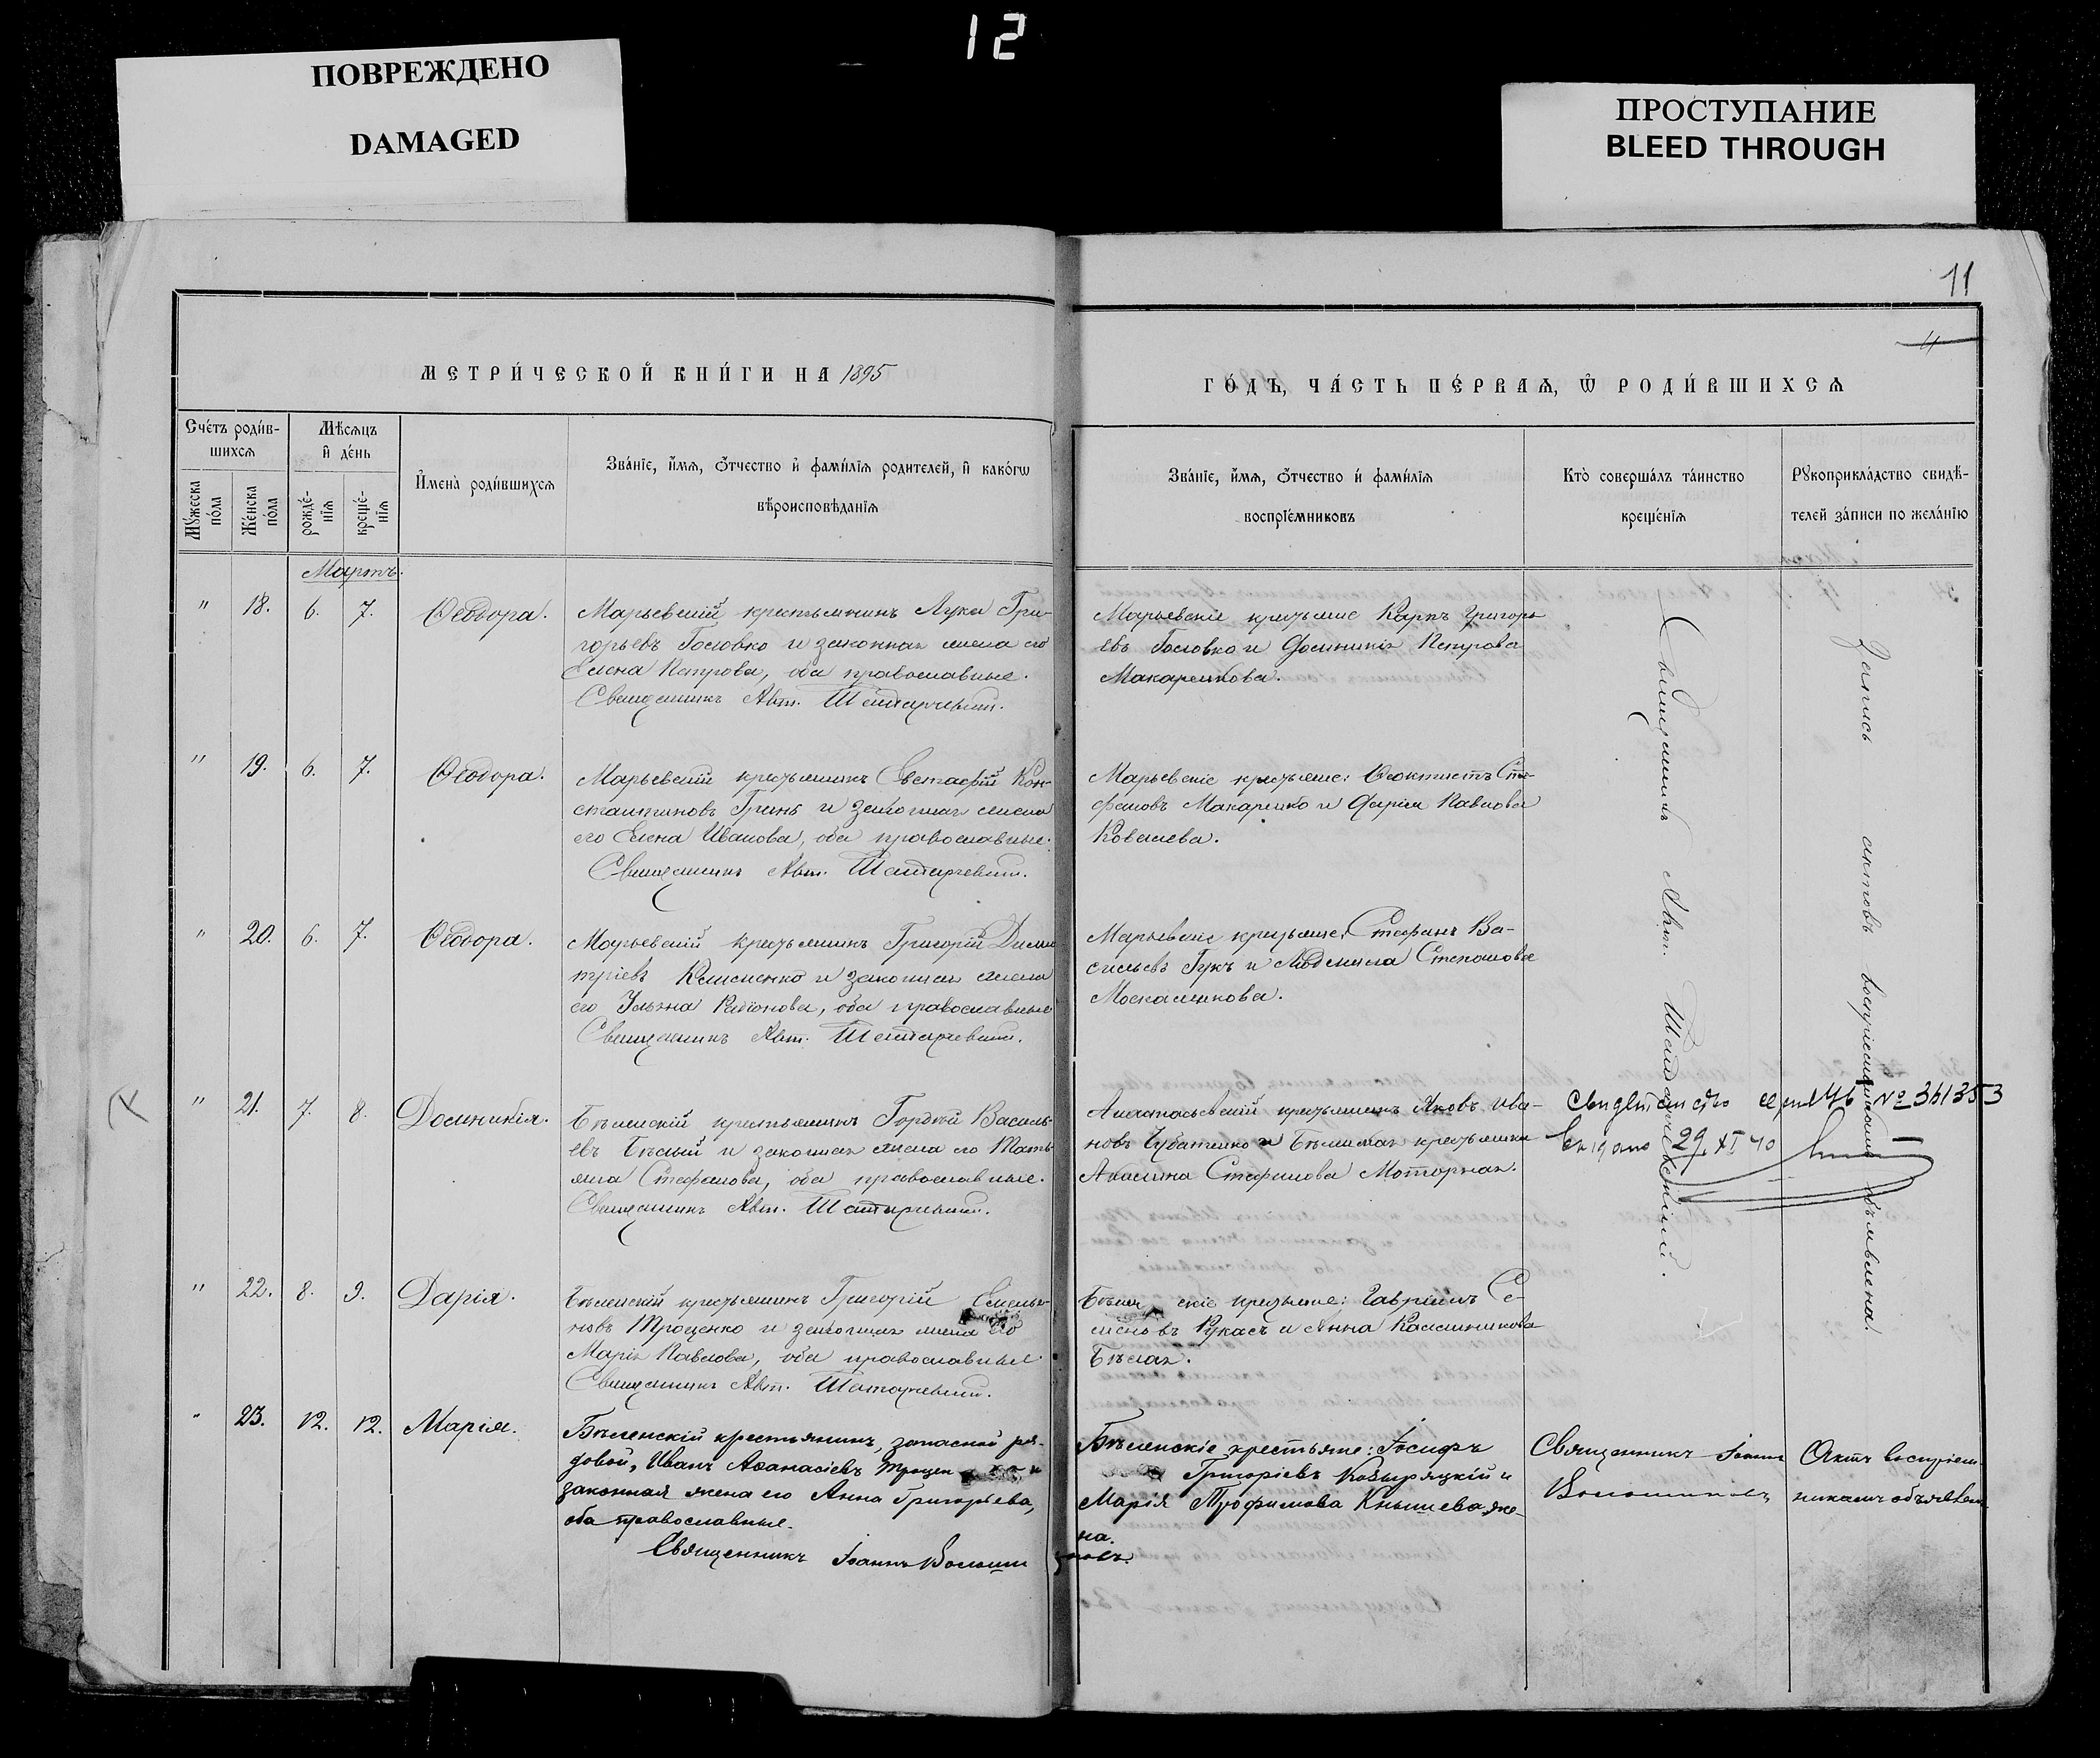 12
ПОВРЕЖДЕНО
DAMAGED
ПРОСТУПАНИЕ
BLEED THROUGH
11
4
МЕТРИ́ЧЕСКОЙ КНИ́ГИ НА 1895
ГО́ДЪ, ЧА́СТЬ ПЕ́РВАѦ, Ѽ РОДИ́ВШИХСѦ
Сче́тъ роди́в-
шихсѧ
Мꙋ́жеска по́ла
Же́нска по́ла
Мѣ́сѧцъ
и҆ де́нь
рожде́-
нїѧ
креще́-
нїѧ
И҆мена̀ роди́вшихсѧ
Зва́нїе, и҆́мѧ, ѻ҆́тчество и҆ фами́лїѧ родителей, и҆ како́гѡ
вѣ̀роисповѣ́данїѧ
Зва́нїе, и҆́мѧ, ѻ҆́тчество и҆ фами́лїѧ
воспрїе́мниковъ
Кто̀ соверша́лъ та́инство
креще́нїѧ
Рꙋкоприкла́дство свидѣ́-
телей за́писи по жела́нїю
Мартъ.
" 18. 6. 7. Ѳеодора.
Марьевскій крестьянинъ Лука Гри-
горьевъ Головко и законная жена его
Елена Петрова, оба православные.
Священникъ Авт.
Марьевскіе крестьяне Карпъ Григорь
евъ Головко и Домникія Петрова
Макаренкова.
" 19. 6. 7. Ѳеодора.
Марьевскій крестьянинъ Евстафій Кон-
стантиновъ Гринь и законная жена
его Елена Иванова, оба православные.
Священникъ Авт.
Марьевскіе крестьяне: Ѳеоктистъ Сте-
фановъ Макаренко и Дарія Павлова
Ковалева.
" 20. 6. 7. Ѳеодора.
Марьевскій крестьянинъ Григорій Дими-
тріевъ и законная жена
его Ульяна Родіонова, оба православные
Священникъ Авт.
Марьевскіе крестьяне: Стефанъ Ва-
сильевъ Гукъ и Людмила Степанова
Москаленкова.
" 21. 7. 8. Домникія.
Бѣленскій крестьянинъ Гордѣй Василь-
евъ Бѣлый и законная жена его Мать-
яна Стефанова, оба православные.
Священникъ Авт.
крестьянинъ Яковъ Ива-
новъ Чубатенко и Бѣленская крестьянка
Акилина Стефанова Моторная.
Свидѣтельство № 361353
Выдано 29/XI 40
" 22. 8. 9. Дарія.
Бѣленскій крестьянинъ Григорій Емелья-
новъ Троценко и законная жена его
Марія Павлова, оба православные
Священникъ Авт.
Бѣленскіе крестьяне: Гавріилъ Се-
меновъ Рукасъ и Анна Калинникова
Бѣлая.
Священникъ Авт.
Запись актовъ воспріемникамъ объявлена.
" 23. 12. 12. Марія.
Бѣленскій крестьянинъ, запасной ря-
довой, Иванъ Аѳанасіевъ Троценко и
законная жена его Анна Григорьева,
оба православные.
Священникъ Іоаннъ Волошиновъ.
Бѣленскіе крестьяне: Іосифъ
Григоріевъ Козыряцкій и
Марія Трофимова Кнышева, же-
на.
Священникъ Іоаннъ
Волошиновъ
Актъ воспріем-
никамъ объявлен